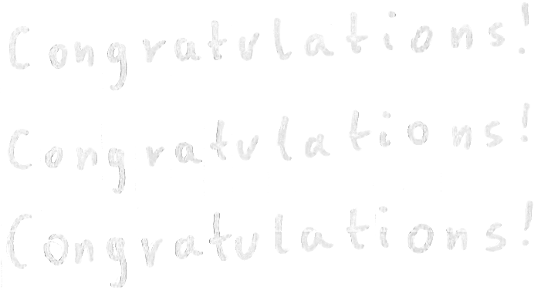 Congratulations!
Congratulations!
Congratulations!